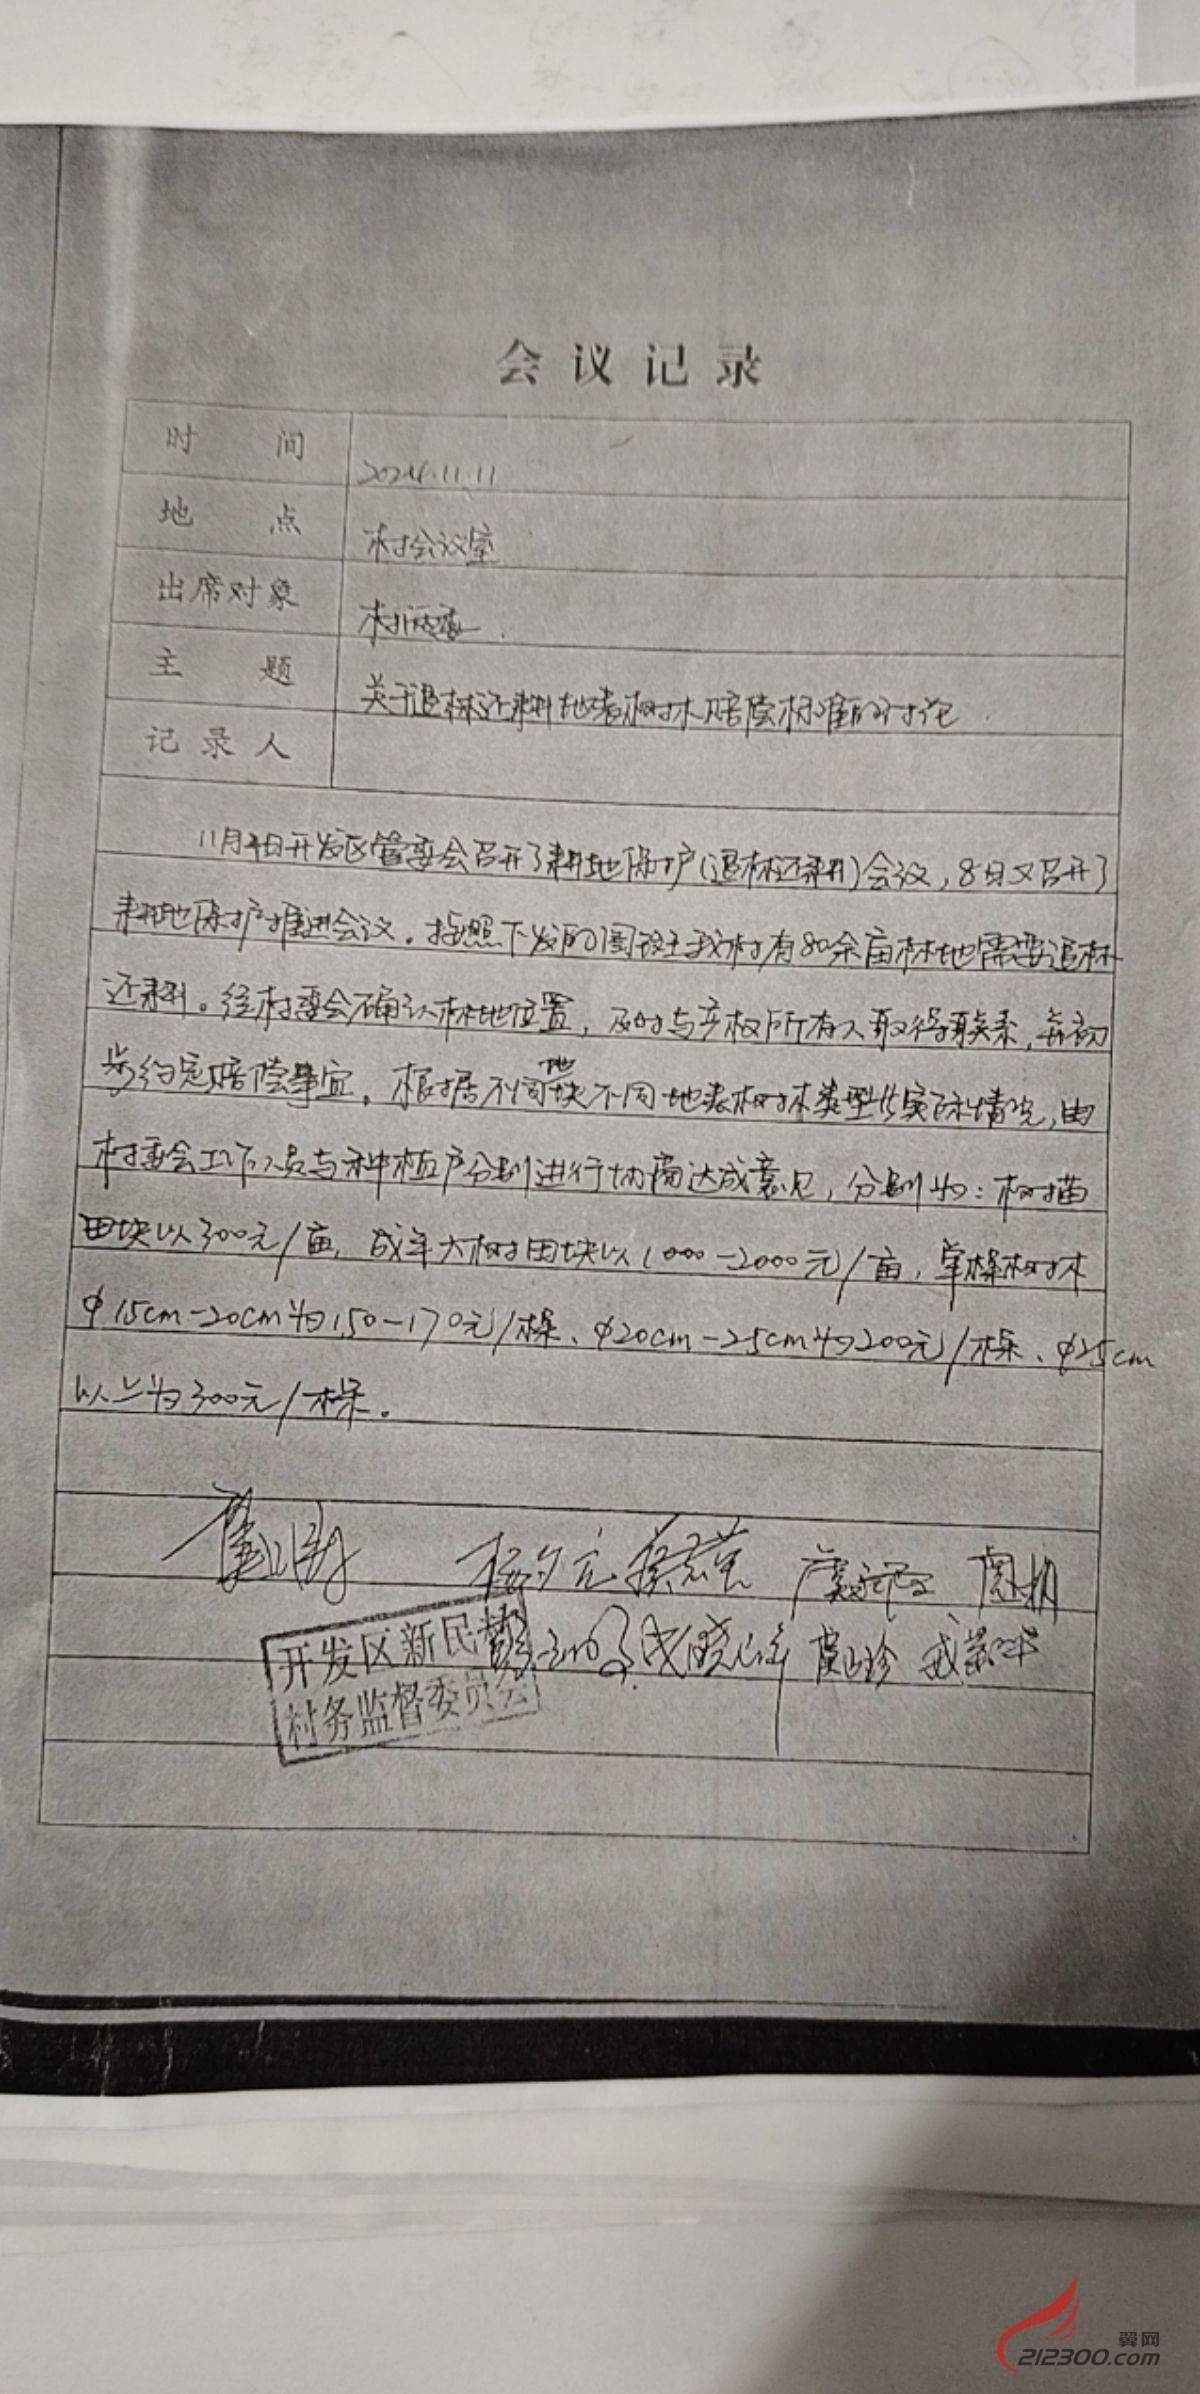 会议记录
时间 2024.11.11
地点 村会议室
出席对象 村两委.
主题 关于退林还耕地表树木赔偿标准的讨论.
记录人
11月4日开发区管委会召开了耕地保护(退林还耕)会议,8日又召开了
耕地保护推进会议。按照下发的图斑我村有80余亩林地需要退林
还耕。经村委会确认林地位置,及时与产权所有人取得联系,并初
步约定赔偿事宜。根据不同地块不同地表树木类型的实际情况,由
村委会工作人员与种植户分别进行协商达成意见,分别为:树苗
田块以300元/亩,成年大树田块以1000-2000元/亩,单棵树木
φ15cm-20cm为150-170元/棵、φ20cm-25cm为200元/棵、φ25cm
以上为300元/棵。
开发区新民村
村务监督委员会
翼网
212300.com